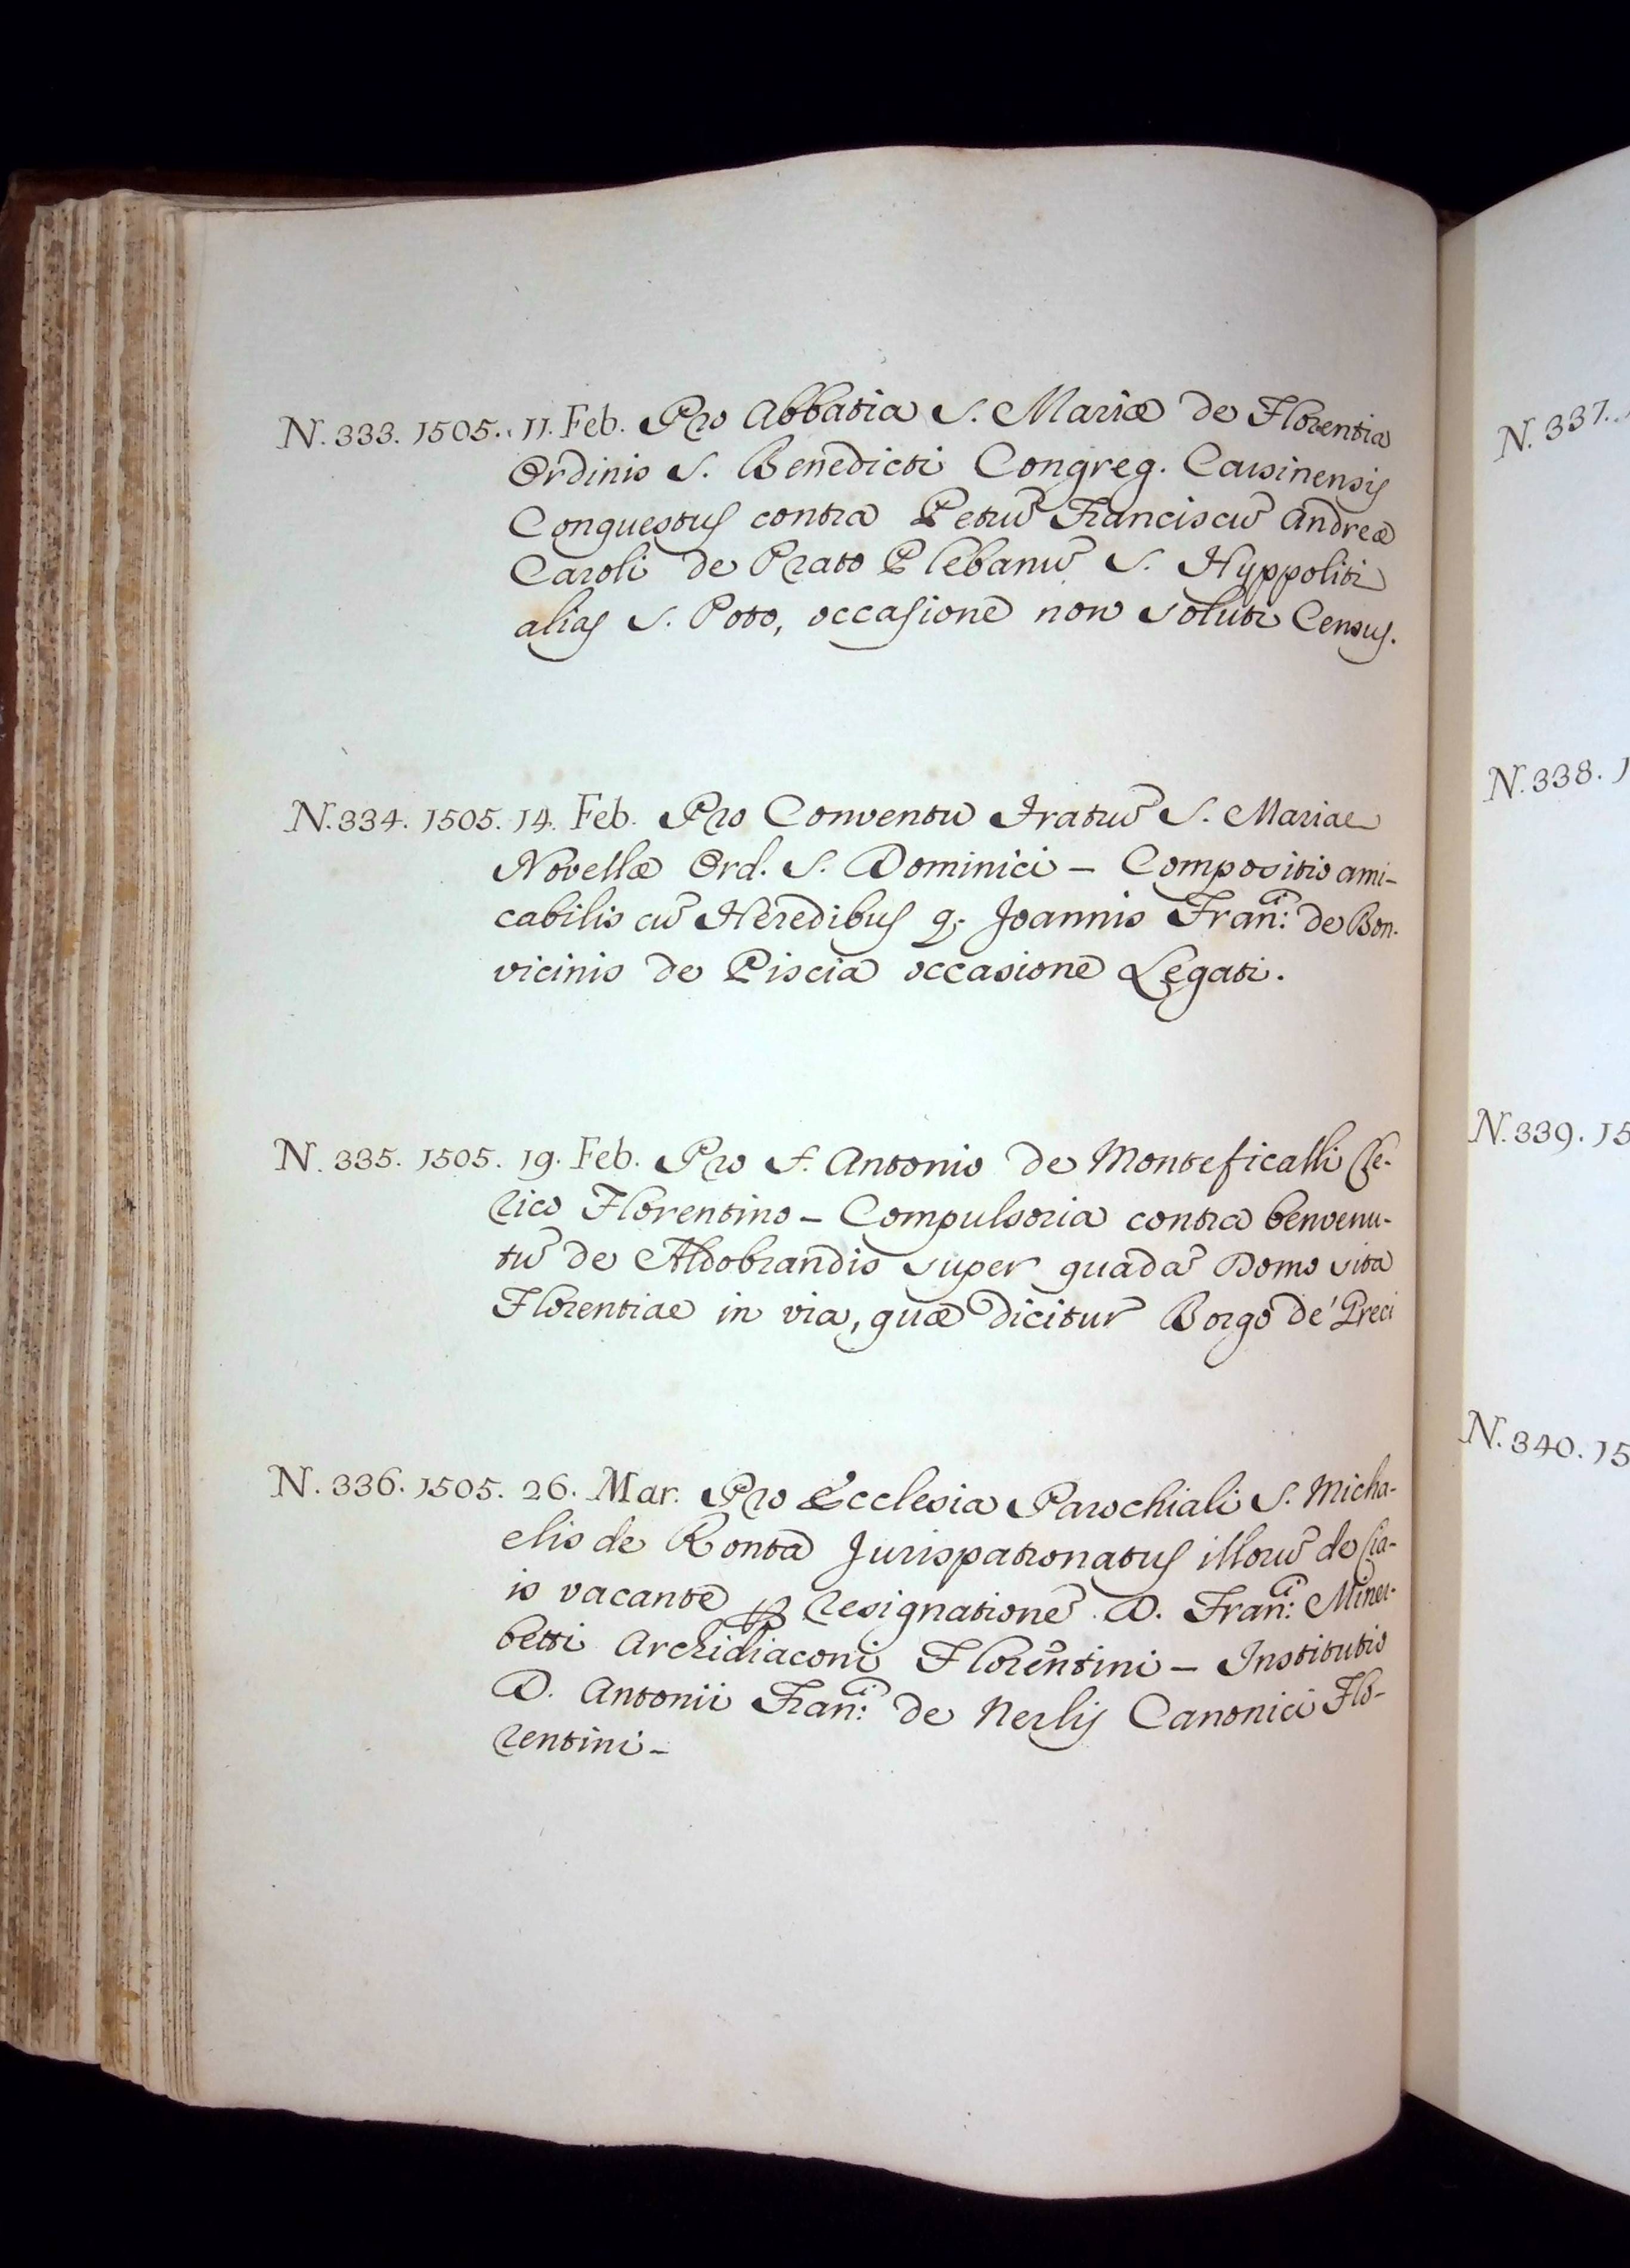 N. 333. 1505. 11. Feb. Pro Abbatia S. Mariæ de Florentia
Ordinis S. Benedicti Congreg. Cassinensis
Conquestus contra Petrũ Franciscũ Andreæ
Caroli de Prato Plebanũ S. Hyppoliti
alias S. Poto, occasione non soluti Census.
N. 334. 1505. 14. Feb. Pro Conventu Fratrũ S. Mariae
Novellæ Ord. S. Dominici – Compositio ami-
cabilis cũ Heredibus q; Joannis Franc̃i: de Bon-
vicinis de Piscia occasione Legati.
N. 335. 1505. 19. Feb. Pro S. Antonio de Monteficalli Cle-
rico Florentino – Compulsoria contra benvenu-
tũ de Aldobrandis super quadã Domo sita
Florentiae in via, quæ dicitur Borgo de' Greci
N. 336. 1505. 26. Mar. Pro Ecclesia Parochiali S. Micha-
elis de Ronta Jurispatronatus illorũ de
is vacante p resignationẽ D. Franc̃i: Miner-
betti Archidiaconi Florẽntini – Institutio
D. Antonii Franc̃i: de Nerlis Canonici Flo-
rentini –
N. 337.
N. 338. 1
N. 339. 15
N. 340. 15